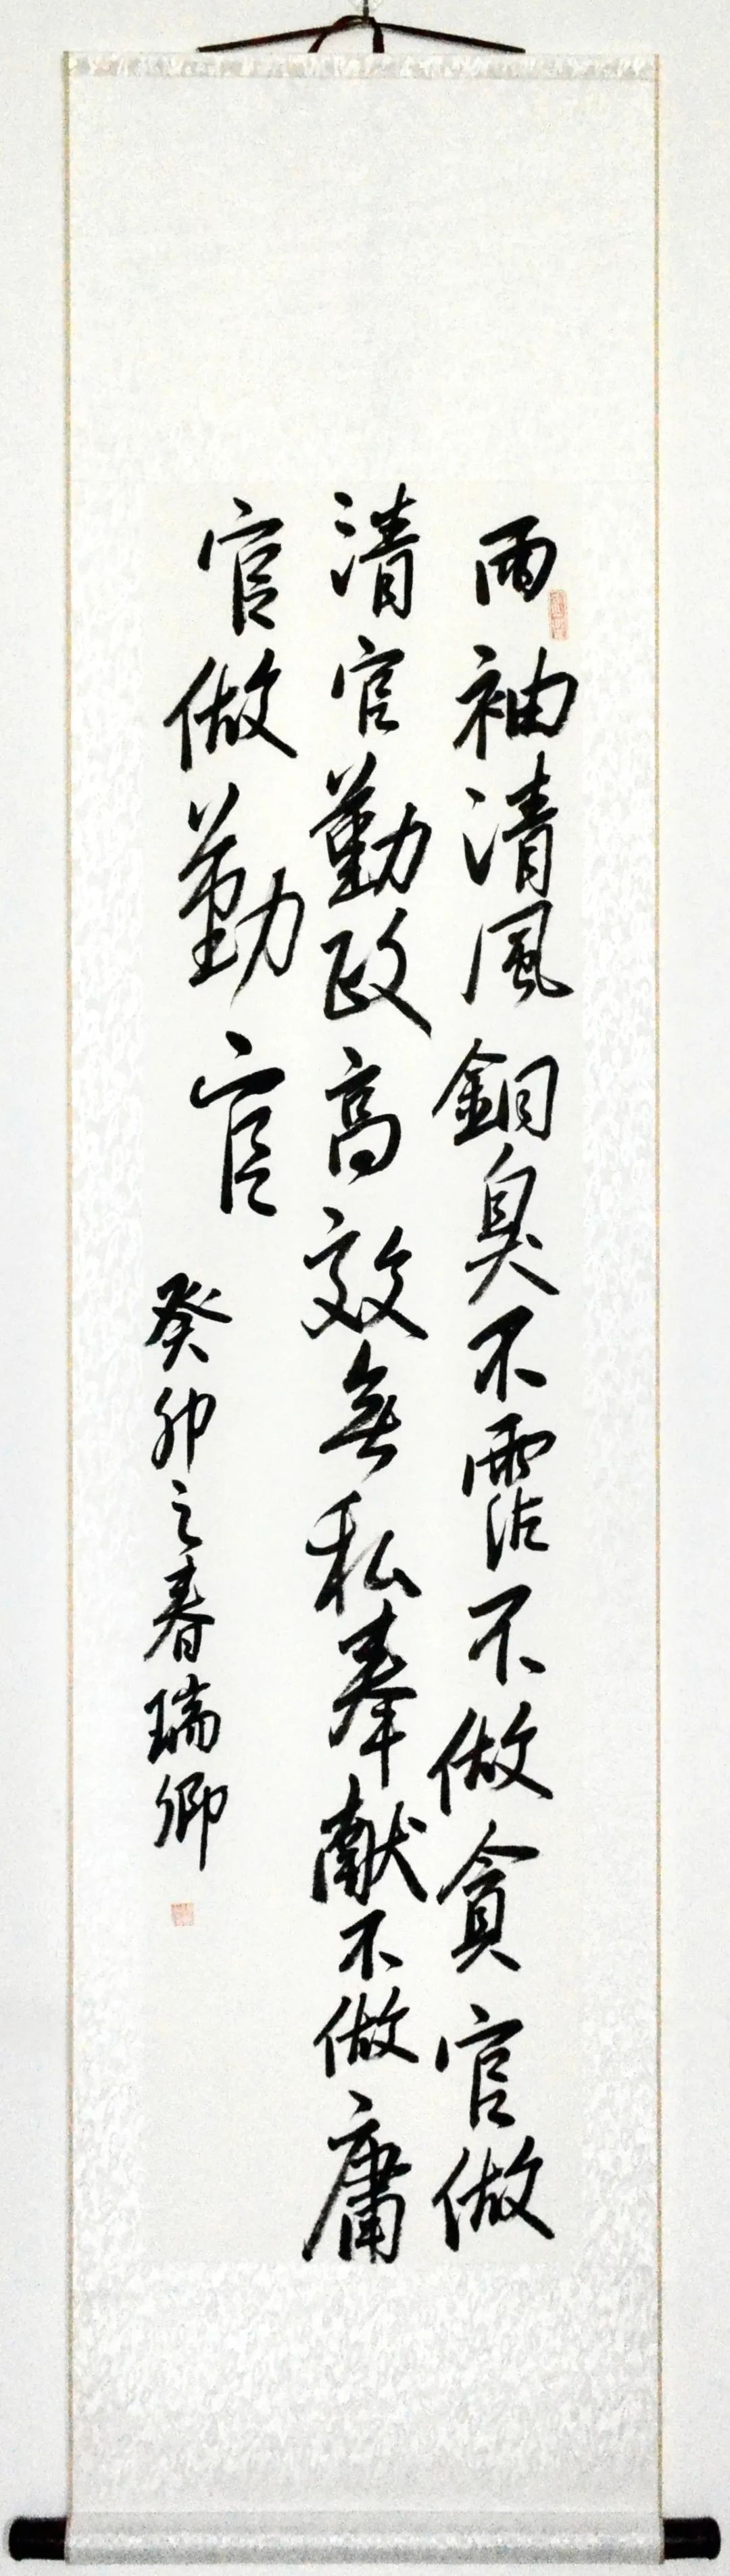 両袖清風銅臭不霑不做貪官做
清官勤政高效無私奉献不做庸
官做勤官
癸卯之春瑞卿